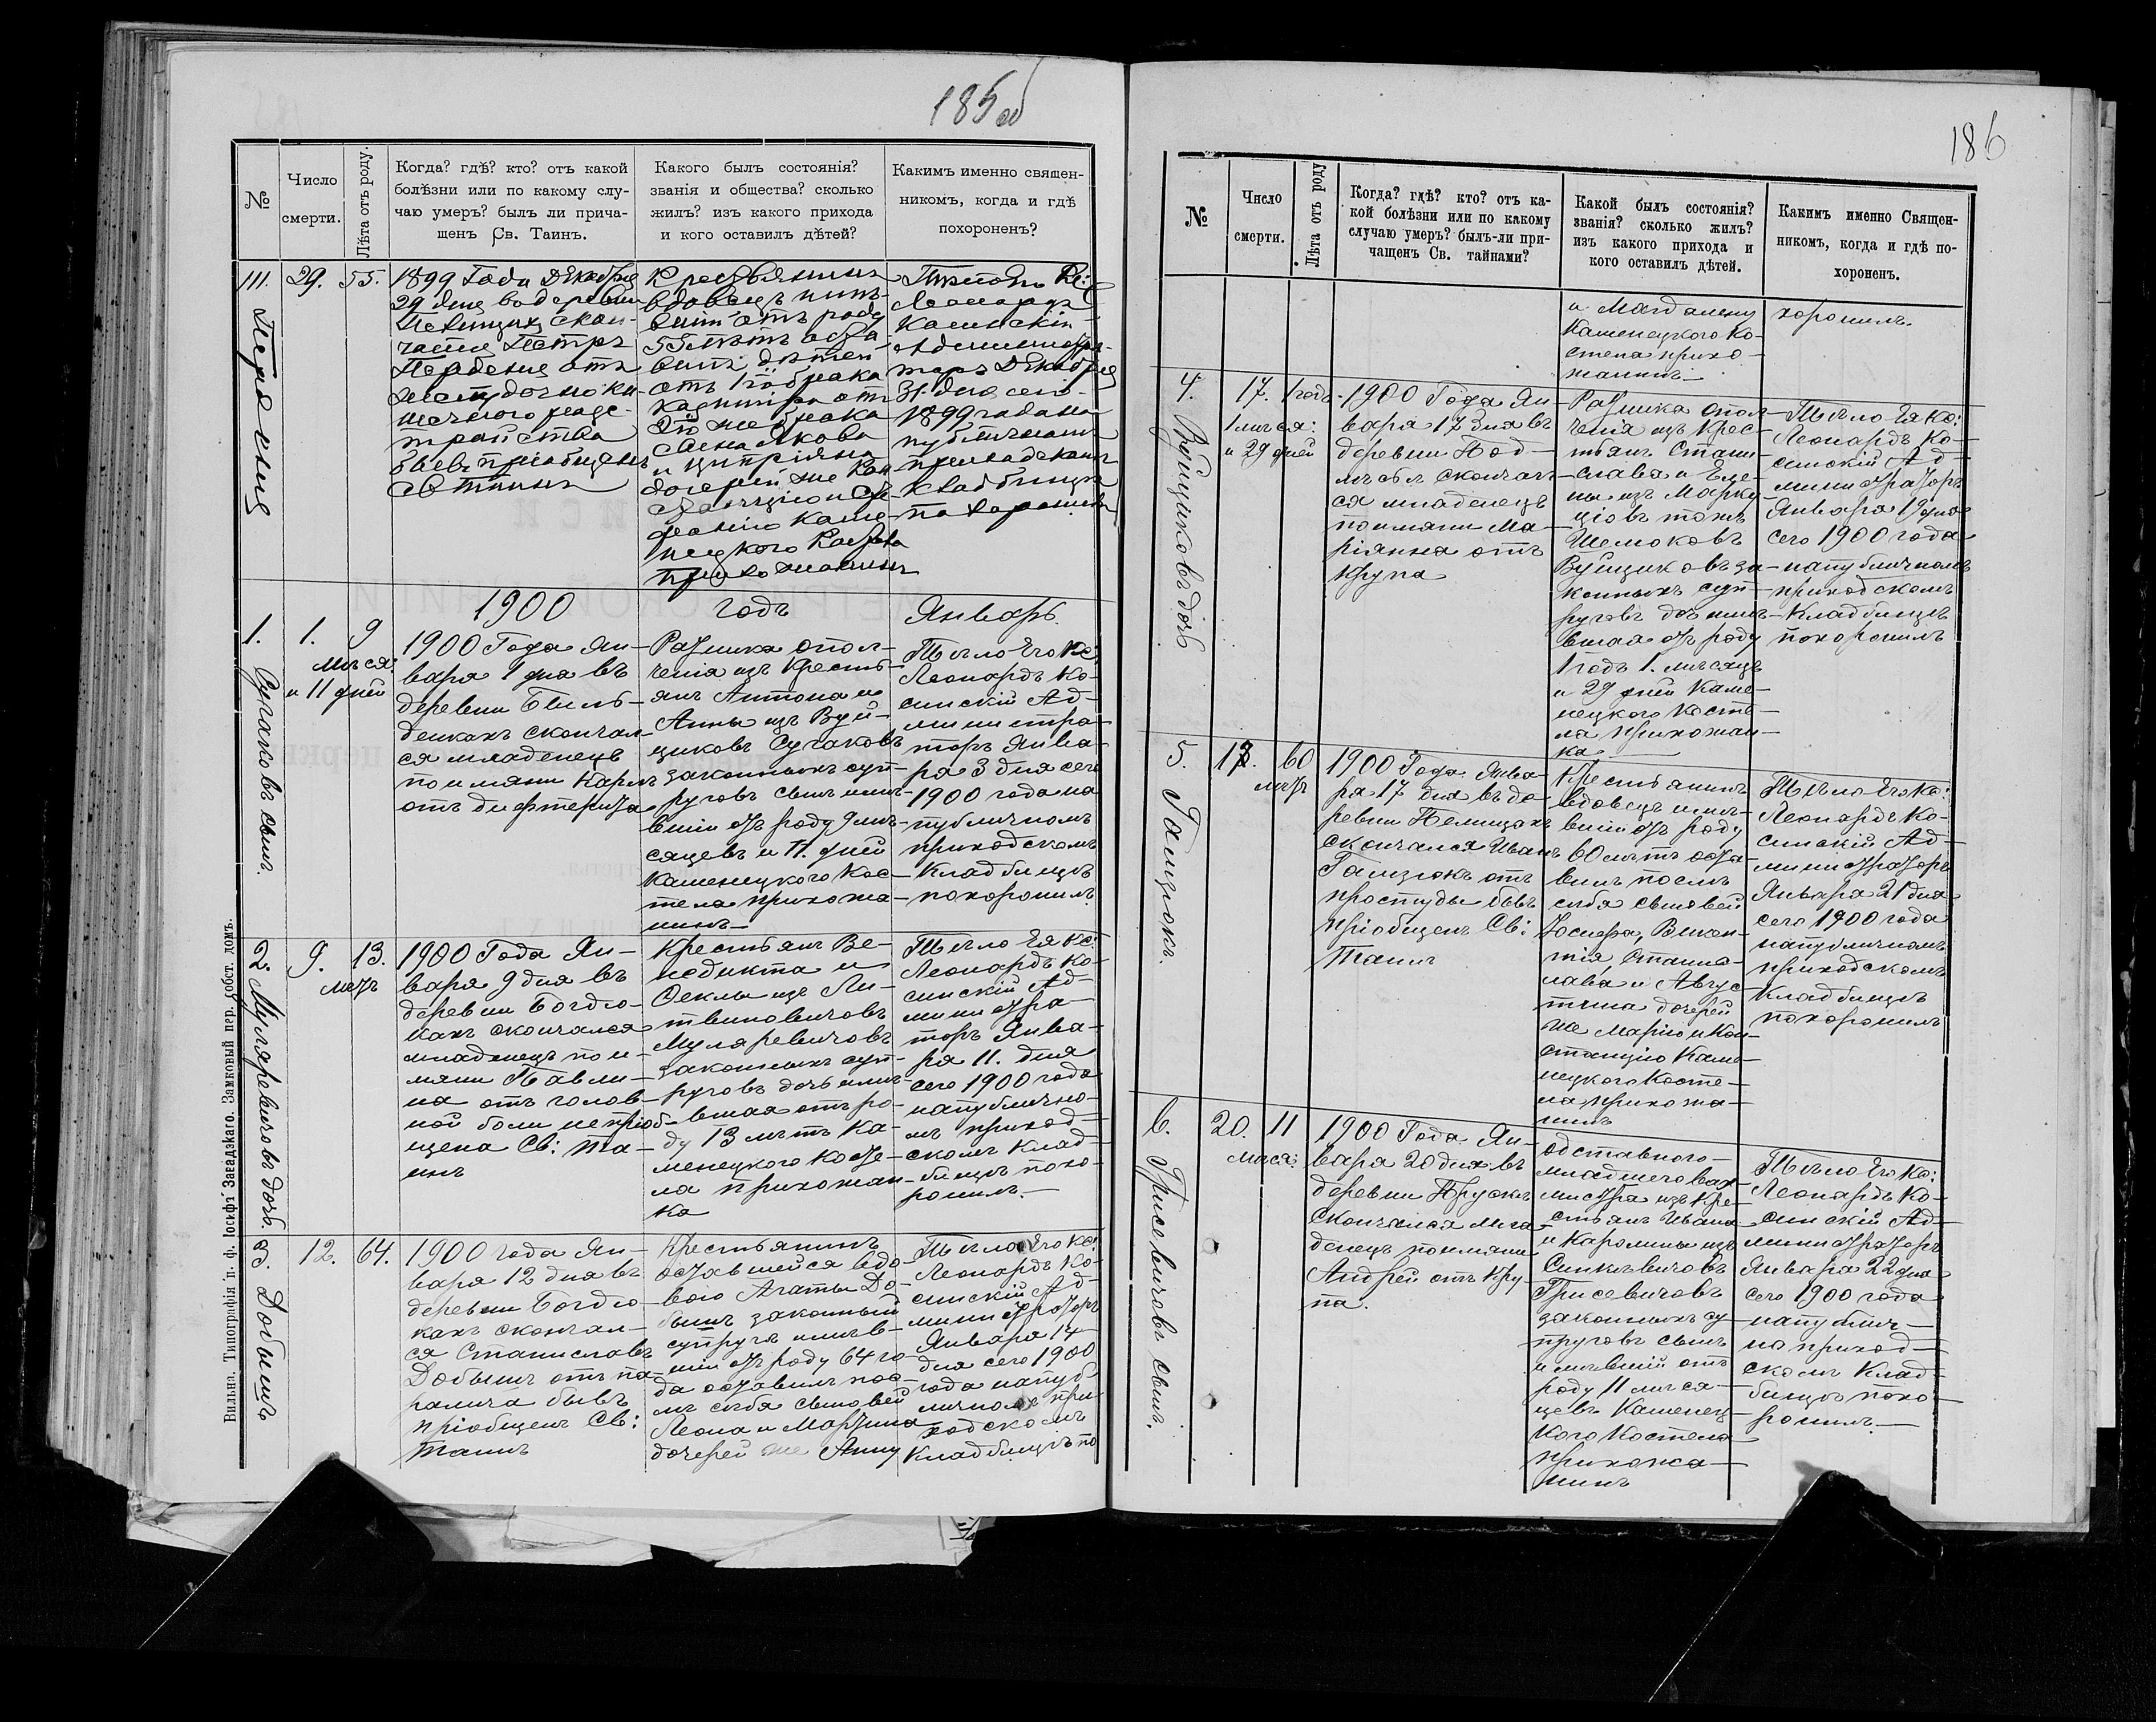 185 об
№
Число
смерти.
Лѣта отъ роду.
Когда? гдѣ? кто? отъ какой
болѣзни или по какому слу-
чаю умеръ? былъ ли прича-
щенъ Св. Таинъ.
Какого былъ состоянія?
званія и общества? сколько
жилъ? изъ какого прихода
и кого оставилъ дѣтей?
Какимъ именно священ-
никомъ, когда и гдѣ
похороненъ?
111.
29.
55.
1899 Года Декабря
29 дня въ деревни
скон-
чался Петръ
отъ
желудочно ки-
шечнаго разс-
тройства
бывъ пріобщенъ
Св Таинъ
Крестьянинъ
вдовецъ имѣ-
вшій отъ роду
55 лѣтъ оста
вилъ дѣтей
отъ 1го брака
Казимира отъ
2го же брака
Сына Якова
и Ципріяна
дочерей же Кон
станцію и Сте
фанію Каме-
нецкого Костела
прихожанинъ
Тѣло Его Кс:
Леонардъ
Косинскій
Администра-
торъ Декабря
31 дня сего
1899 года на
публичномъ
приходскомъ
кладбищѣ
похоронилъ
1900
годъ
Январь.
1.
Сугаковъ сынъ.
1.
9
мѣся:
и 11 дней
1900 Года Ян-
варя 1 дня въ
деревни Бѣль-
декахъ скончал-
ся младенецъ
по имяни Карлъ
отъ дифтерита
Ратника опол-
ченія изъ Кресть-
янъ Антона и
Анны изъ Вуй-
циковъ Сугаковъ
законныхъ суп-
руговъ сынъ имѣ-
вшій отъ роду 9 мѣ-
сяцевъ и 11. дней
Каменецкого Кос-
тела прихожа-
нинъ
Тѣло Его Кс:
Леонардъ Ко-
синскій Ад-
министра-
торъ Янва-
ря 3 дня сего
1900 года на
публичномъ
приходскомъ
Кладбищѣ
похоронилъ.
2.
Муляревичовъ дочь.
9.
13.
лѣтъ
1900 Года Ян-
варя 9 дня въ
деревни Богдю-
кахъ скончался
младенецъ по и-
мяни Павли-
на отъ голов-
ной боли не пріоб-
щена Св: Та-
инъ
Крестьянъ Бе-
недикта и
Феклы изъ Ли-
твиновичовъ
Муляревичовъ
законныхъ суп-
руговъ дочь имѣ-
вшая отъ ро-
ду 13 лѣтъ Ка-
менецкого Косте-
ла прихожан-
ка
Тѣло Ея Кс:
Леонардъ Ко-
синскій Ад-
министра-
торъ Янва-
ря 11. дня
сего 1900 года
на публично-
мъ приход-
скомъ клад-
бищѣ похо-
ронилъ.
3.
Добышъ
12.
64.
1900 года Ян-
варя 12 дня въ
деревни Богдю-
кахъ скончал-
ся Станиславъ
Добышъ отъ па-
ралича бывъ
пріобщенъ Св:
Таинъ
Крестьянинъ
оставшейся вдо-
вою Агаты До-
бышъ законный
супругъ имѣв-
шій отъ роду 64 го-
да оставилъ пос-
лѣ себя сыновей
Леона и Мартина
дочерей же Анну
Тѣло Его Кс:
Леонардъ Ко-
синскій Ад-
министраторъ
Января 14
дня сего 1900
года на пуб-
личномъ при-
ходскомъ
Кладбищѣ по
Вильна. Типографія п. ф. Іосифъ Завадзкаго. Замковый пер. собст. домъ.
186
№
Число
смерти.
Лѣта отъ роду
Когда? гдѣ? кто? отъ ка-
кой болѣзни или по какому
случаю умеръ? былъ-ли при-
чащенъ Св. тайнами?
Какой былъ состоянія?
званія? сколько жилъ?
изъ какого прихода и
кого оставилъ дѣтей.
Какимъ именно Священ-
никомъ, когда и гдѣ по-
хороненъ.
и Магдалену
Каменецкого Ко-
стела прихо-
жанинъ
хоронилъ.
4.
Вуйциковъ дочь
17.
1 годъ
1 мѣся:
и 29 дней
1900 Года Ян-
варя 17 дня въ
деревни Под-
лѣсьѣ скончал-
ся младенецъ
по имяни Ма-
ріянна отъ
Крупа
Ратника опол-
ченія изъ Крес-
тьянъ Стани-
слава и Еле-
ны изъ Марку-
ціовъ тожъ
Шемоковъ
Вуйциковъ за-
конныхъ суп-
руговъ дочь имѣ-
вшая отъ роду
1 годъ 1. мѣсяцъ
и 29 дней Каме-
нецкого Косте-
ла прихожан-
ка
Тѣло Ея Кс:
Леонардъ Ко-
синскій Ад-
министраторъ
Января 19 дня
сего 1900 года
на публичномъ
приходскомъ
Кладбищѣ
похоронилъ
5.
Гацюкъ.
60
лѣтъ
1900 Года Янва-
ря 17 дня въ де-
ревни Пелищахъ
скончался Иванъ
Гацюкъ отъ
простуды бывъ
пріобщенъ Св:
Таинъ
Крестьянинъ
вдовецъ имѣ-
вшій отъ роду
60 лѣтъ оста-
вилъ послѣ
себя сыновей
Юсифа, Викен-
тія, Станис-
лава и Авгус-
тина дочерей
же Марію и Кон-
станцію Каме-
нецкого Косте-
ла прихожа-
нинъ
Тѣло Его Кс:
Леонардъ Ко-
синскій Ад-
министраторъ
Января 21 дня
сего 1900 года
на публичномъ
приходскомъ
Кладбищѣ
похоронилъ
6.
Грисевичовъ сынъ.
20.
11
мѣся:
1900 Года Ян-
варя 20 дня въ
деревни Пруски
скончался мла-
денецъ по имяни
Андрей отъ Кру-
па.
Одставного
младшего вах-
мистра изъ Кре-
стьянъ Ивана
и Каролины изъ
Синкевичовъ
Грисевичовъ
законныхъ су-
пруговъ сынъ
имѣвшій отъ
роду 11 мѣся-
цевъ Каменец-
кого Костела
прихожа-
нинъ
Тѣло Его Кс:
Леонардъ Ко-
синскій Ад-
министраторъ
Января 22 дня
сего 1900 года
на публич-
но приход-
скомъ Клад-
бищѣ похо-
ронилъ.